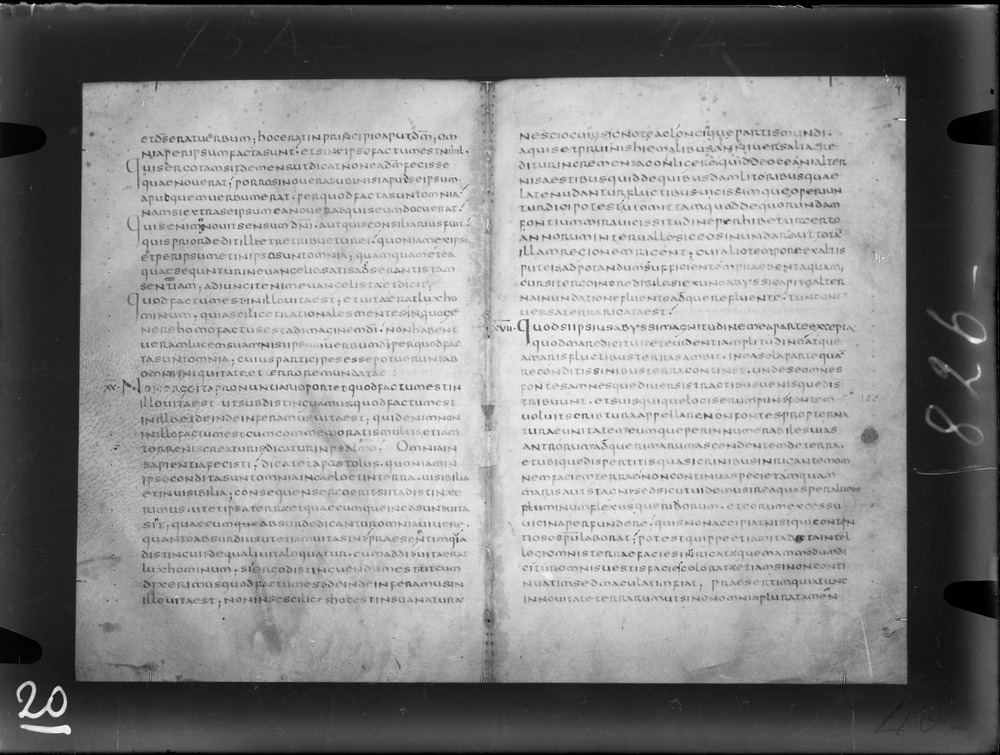 etdseratuerbum; hoceratinprincipioaputdm, om
niaperipsumfactasunt. etsineipsofactumestnihil.
quisergotamsitdemensutdicatnoneadmfecisse
quaenouerat; porrosinoueratubinisiapudseipsum
apudquemuerbumerat. perquodfactasuntomnia.
namsiextraseipsumeanouerat quiseumdocuerat.
quisenim nouitsensum dni. autquisconsiliariusfuit.
quispriordeditilli etretribueturei. quoniamexipso
etperipsumetinipsosuntomnia; quamquametea
quaesequnturineuangeliosatisadserantistam
sentiam, adiungitenimeuangelistaetdicit;
quodfactumestinillouitaest, etuitaeratluxho
minum, quiascilicetrationalesmentesinquoge
nerehomofactusestadimaginemdi. nonhabent
ueramlucemsuamnisiipsumuerbumdiperquodfac
tasuntomnia, cuiusparticipesessepoteruntab
omniiniquitate et erroremundatae
xx. Nonergoitapronuntiarioportetquodfactumestin
illouitaest utsubdistinguamusquodfactumest
inilloetdeindeinferamusuitaest, quidenimnon
inillofactumestcumcommemoratismultisetiam
terreniscreaturisdicaturinpsalmo. Omniain
sapientiafecisti, dicatetapostolus. quoniamin
ipsocondita suntomniaincaeloetinterra. uisibilia
etinuisibilia, consequensergoeritsiitadistinxe
rimus. utetipsaterraetquaecumqueineasuntuita
sit, quaecumqueabsurdedicanturomniauiuere.
quantoabsurdiusutetiamuitasinpraesentimquia
distinguisdequaliuitaloquatur. cumadditut aerat
luxhominum, siergodistinguendumestutcum
dixerimusquodfactumestdeindeinferamusin
illouitaest, noninsescilicethocestinsuanatura
nesciocuiussignoteaclongi que partismundi.
aquisetpruinishiemalibusanniuersaliacre
diturincrementaconligere. quiddeoceanialter
nisaestibusquiddequibusdamlitoribusquae
latenudanturfluctibusuicissimqueoperiun
turdicipotest utomittamquoddequorundam
fontiummirauicissitudineperhibeturcerto
annoruminteruallosiceosinundareuttota
illamregionemrigent, cuialiotemporexaltis
puteisadpotandumsufficientempraebentaquam;
curergoincredibilesiexunaabyssicapitealter
nainundationefluentoadquerefluente. tuncuni
uersaterrarigataest.
VII. Quodsiipsiusabyssimagnitudinemeaparteexcepta
quodmaredicituretevidentiamplitudineatque
amarisfluctibusterrasambit. ineasolapartequa
reconditissinibusterracontinet. undeseomnes
fontesamnesquediuersistractibusuenisquedis
tribuunt. etsuisquiquelociserumpunt fontem
uoluitscribturaappellarenonfontespropterna
turaeunitatem eumqueperinnumerabilesuias
antrorumadquerimarumascendentemdeterra.
etubiquedispertitisquasicrinibusinrigantemom
nemfaciemterrae. noncontinuaspecietamquam
marisautstagnisedsicutuidemusireaquasperalueos
fluminumflexusqueriuorum. eteorumexcessu
uicinaperfundere, quisnonaccipiatnisiquiconten
tiosospulaborat, potestquippeetiamitadictaintel
legiomnisterraefaciesinrigataquemammodumdi
cituromnisuestisfaciescolorataetiamsinonconti
nuatimsedmaculatimfiat, praesertimquiatunc
innouitateterrarumutsinonomniaplurata mén
20
826